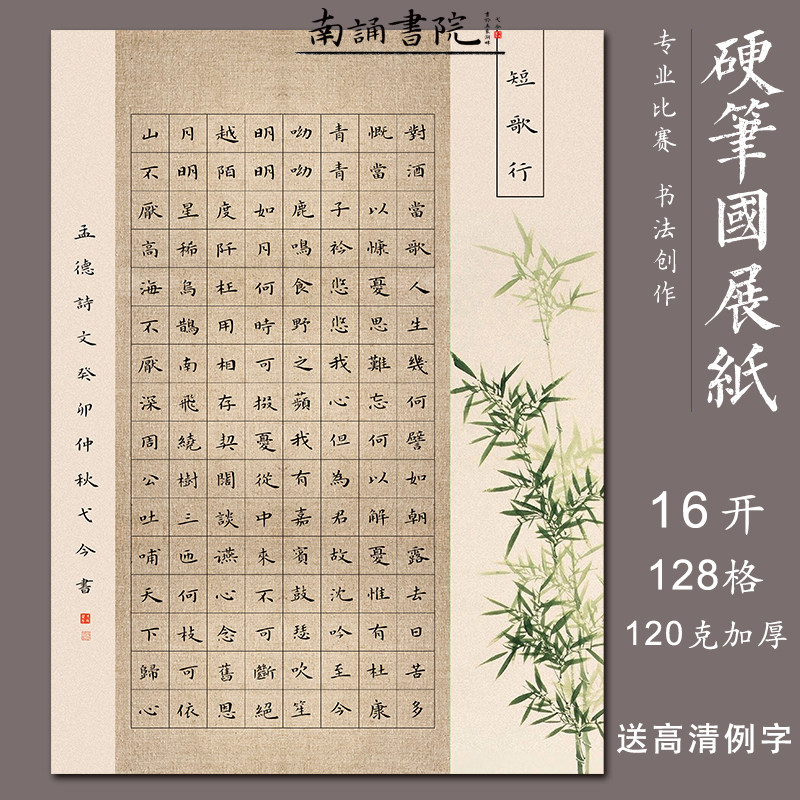 南誦書院
硬筆國展紙
专业比赛 书法创作
短歌行
對酒當歌人生幾何譬如朝露去日苦多
慨當以慷憂思難忘何以解憂惟有杜康
青青子衿悠悠我心但為君故沈吟至今
呦呦鹿鳴食野之蘋我有嘉賓鼓瑟吹笙
明明如月何時可掇憂從中來不可斷絕
越陌度阡枉用相存契闊談讌心念舊恩
月明星稀烏鵲南飛繞樹三匝何枝可依
山不厭高海不厭深周公吐哺天下歸心
孟德詩文癸卯仲秋弋今書
16开
128格
120克加厚
送高清例字